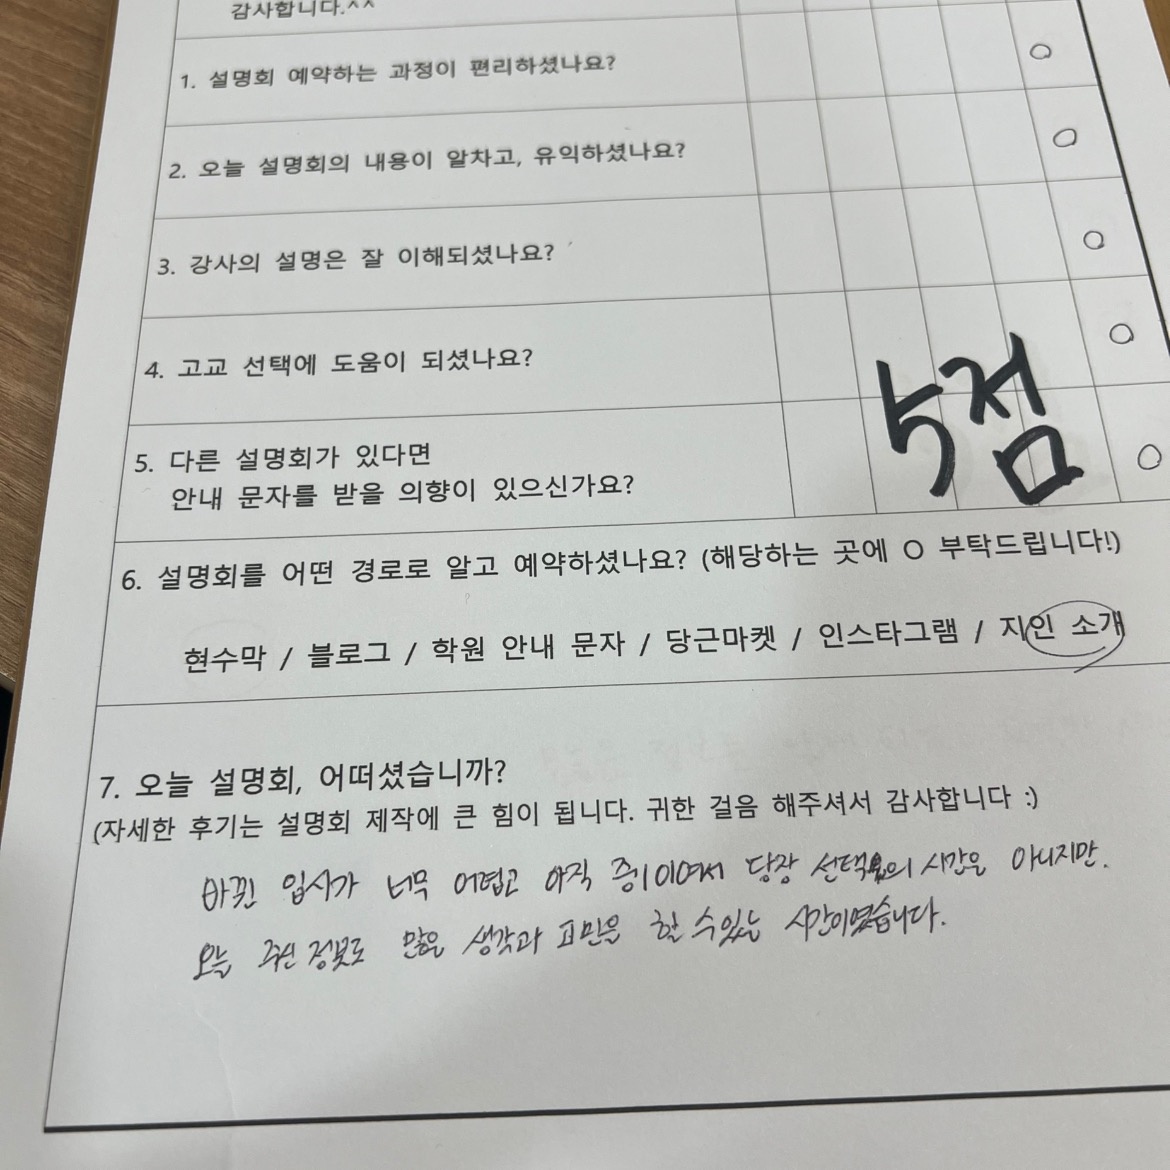 감사합니다.^^
1. 설명회 예약하는 과정이 편리하셨나요? O
2. 오늘 설명회의 내용이 알차고, 유익하셨나요? O
3. 강사의 설명은 잘 이해되셨나요? O
4. 고교 선택에 도움이 되셨나요? O
5점
5. 다른 설명회가 있다면
안내 문자를 받을 의향이 있으신가요? O
6. 설명회를 어떤 경로로 알고 예약하셨나요? (해당하는 곳에 O 부탁드립니다!)
현수막 / 블로그 / 학원 안내 문자 / 당근마켓 / 인스타그램 / 지인 소개
7. 오늘 설명회, 어떠셨습니까?
(자세한 후기는 설명회 제작에 큰 힘이 됩니다. 귀한 걸음 해주셔서 감사합니다 :)
바뀐 입시가 너무 어렵고 아직 중1이여서 당장 선택의 시간은 아니지만.
오늘 주신 정보로 많은 생각과 고민을 할 수 있는 시간이였습니다.